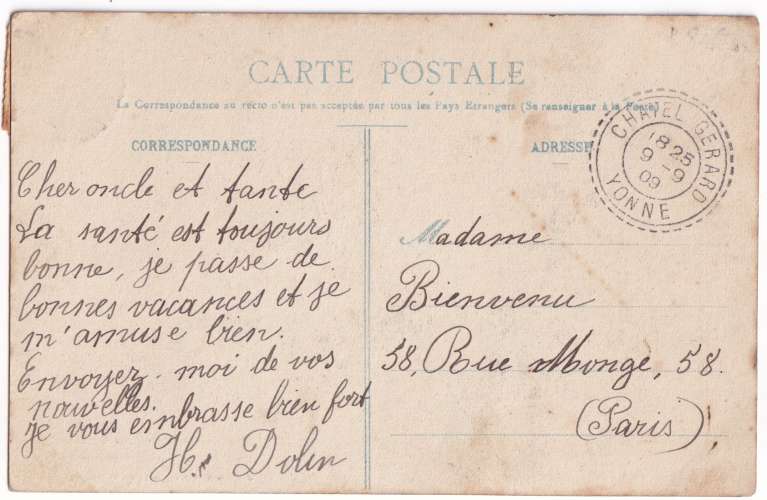 CARTE POSTALE
La Correspondance au recto n'est pas acceptée par tous les Pays Etrangers (Se renseigner à la Poste)
CORRESPONDANCE
Cher oncle et tante
La santé est toujours
bonne, je passe de
bonnes vacances et je
m'amuse bien.
Envoyez-moi de vos
nouvelles.
Je vous embrasse bien fort
H. Dolin
ADRESSE
Madame
Bienvenu
58, Rue Monge, 58.
(Paris)
CHATEL-GERARD
18 25
9 - 9
09
YONNE